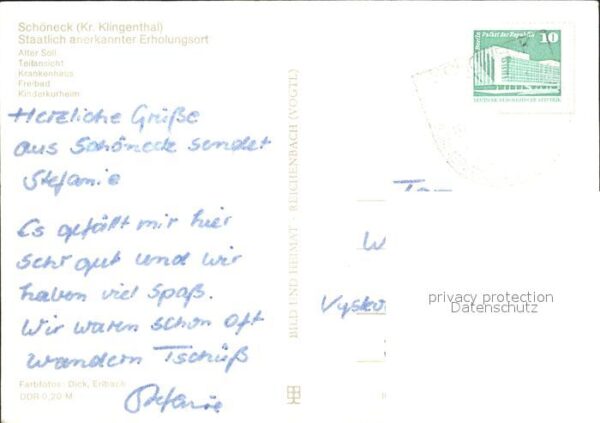 Schöneck (Kr. Klingenthal)
Staatlich anerkannter Erholungsort
Alter Söll
Teilansicht
Krankenhaus
Freibad
Kinderkurheim
Herzliche Grüße
aus Schöneck sendet
Stefanie
Es gefällt mir hier
sehr gut und wir
haben viel Spaß.
Wir waren schon oft
wandern Tschüß
Stefanie
Farbfotos: Dick, Erlbach
DDR 0,20 M
BILD UND HEIMAT REICHENBACH (VOGTL)
Berlin Palast der Republik
10
DEUTSCHE DEMOKRATISCHE REPUBLIK
privacy protection
Datenschutz